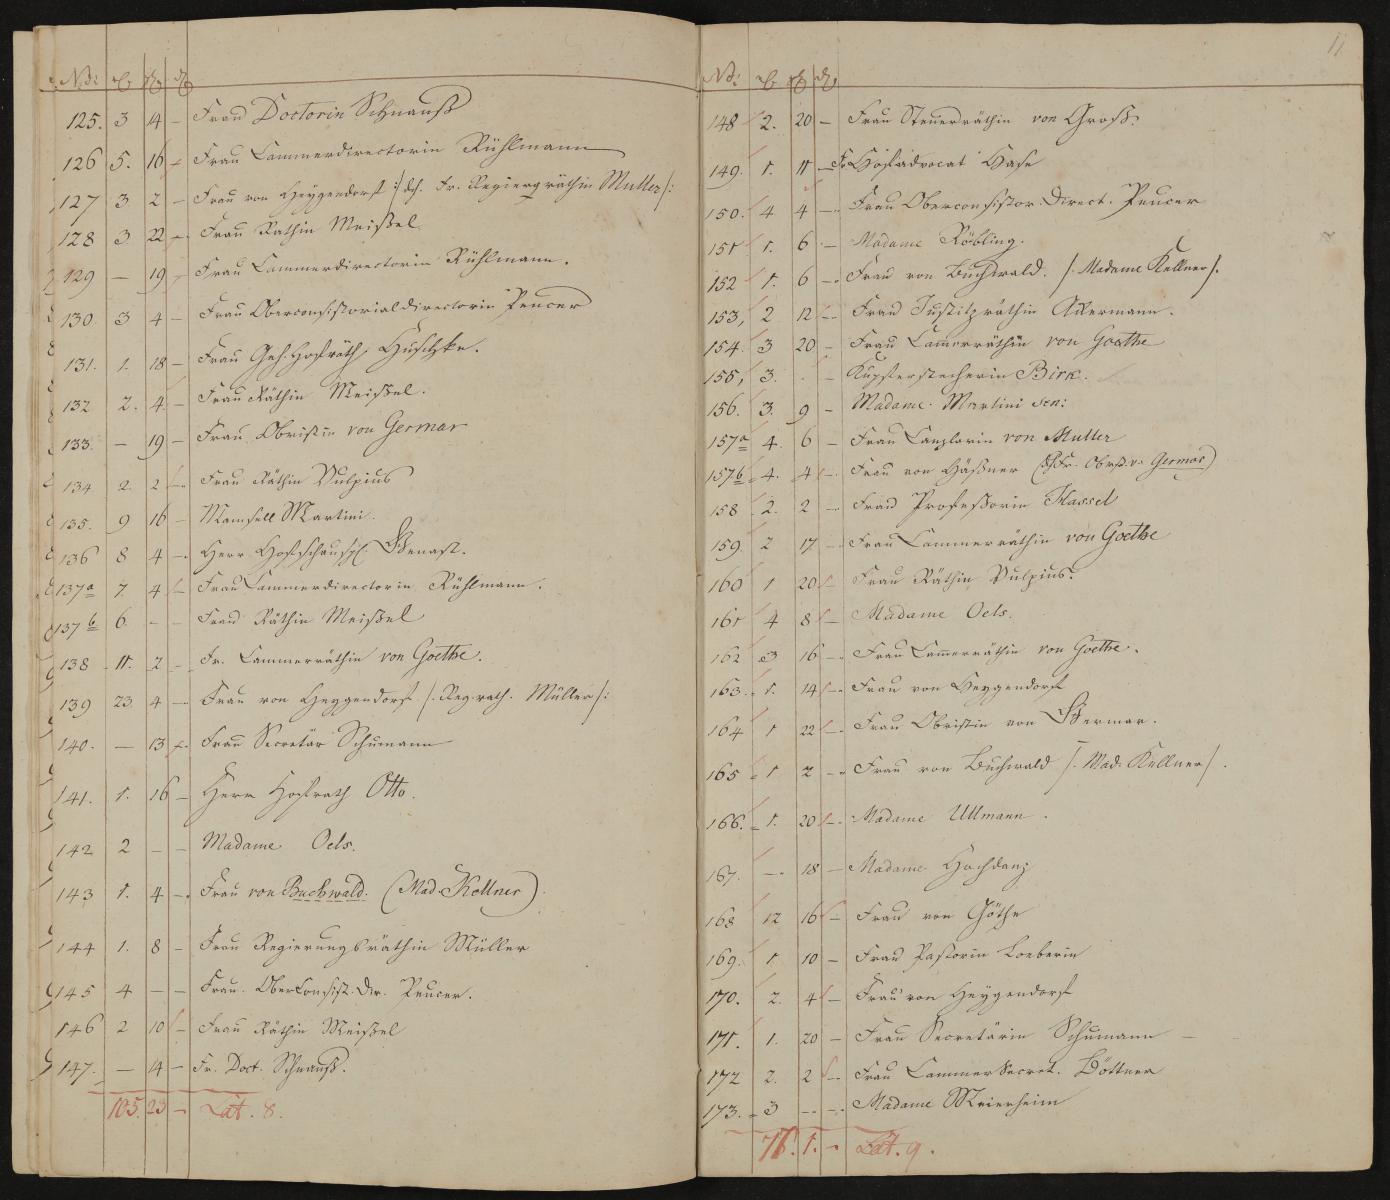 No:
125. 3 14 — Frau Doctorin Schnauß
126 5. 16 — Frau Cammerdirectorin Rühlmann
127 3 2 — Frau von Heygendorf /: dch. Fr. Regiergsräthin Muller /:
128 3 22 — Frau Räthin Meißel
129 — 19 — Frau Cammerdirectorin Rühlmann.
130 3 4 — Frau Oberconsistorialdirectorin Peucer
131. 1. 18 — Frau Geh: Hofräth. Huschke.
132 2. 4 — Frau Räthin Meißel.
133. — 19 — Frau Obristin von Germar
134 2. 2 — Frau Räthin Vulpius
135. 9 16 — Mamsell Martini.
136 8 4 — Herr Hofschausp. Genast.
137a 7. 4 — Frau Cammerdirectorin Rühlmann.
137b 6. — — Frau Räthin Meißel
138 11. 2 — Fr. Cammerräthin von Goethe.
139 23 4 — Frau von Heygendorf /: Reg. rath. Müller /:
140. — 13 — Frau Secretär Schumann
141. 1. 16 — Herr Hofrath Otto.
142 2 — — Madame Oels.
143 1. 4 — Frau von Buchwald. (Mad. Kellner).
144 1. 8 — Frau Regierungsräthin Müller
145 4 — — Frau OberConsist. Dir. Peucer.
146 2 10 — Frau Räthin Meißel
147. — 14 — Fr. Doct. Schnauß.
105. 23 — Lat. 8.
11
No:
148 2. 20 — Frau Steuerräthin von Groß.
149. 1. 11 — Fr Hofadvocat Hase
150. 4 4 — Frau Oberconsistor. Direct. Peucer
151 1. 6 — Madame Röbling.
152 1. 6 — Frau von Buchwald. /: Madame Kellner /.
153, 2 12 — Frau Justitzräthin Ackermann.
154. 3 20 — Frau Cammerräthin von Goethe
155, 3. — Kupferstecherin Birk.
156. 3. 9 — Madame Martini sen:
157a 4. 6 — Frau Canzlerin von Muller
157b 4. 4 — Frau von Häßner (Fr. Obrst. v. Germar)
158 2. 2 — Frau Professorin Hassel
159. 2 17 — Frau Cammerräthin von Goethe
160 1 20 — Frau Räthin Vulpius.
161 4 8 — Madame Oels.
162 3 16 — Frau Cammerräthin von Goethe.
163. 1. 14 — Frau von Heygendorf
164 1 22 — Frau Obristin von Germar.
165 1 2 — Frau von Buchwald /: Mad: Kellner /.
166. 1. 20 — Madame Ullmann.
167. — 18 — Madame Hochdanz
168 12 16 — Frau von Göthe
169. 1 10 — Frau Pastorin Loeberin
170. 2. 4 — Frau von Heygendorf
171. 1. 20 — Frau Secretärin Schumann —
172 2. 2 — Frau CammerSecret. Böttner
173. 3 — — Madame Meierheim
76. 1. — Lat. 9.